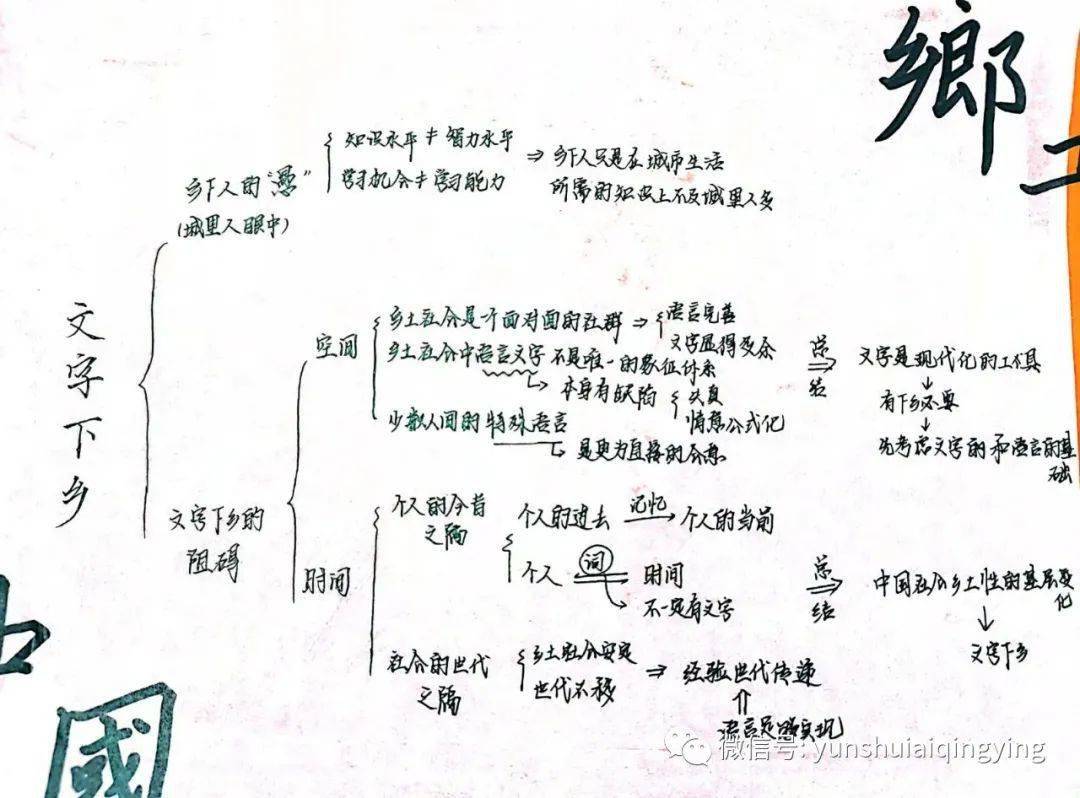 鄉土
中
國
文字下乡
乡下人的“愚”
(城里人眼中)
知识水平≠智力水平
学习机会≠学习能力
⇒ 乡下人只是在城市生活
所需的知识上不及城里人多
文字下乡的
阻碍
空间
乡土社会是个面对面的社群 ⇒ 语言完善
文字显得多余
乡土社会中语言文字不是唯一的象征体系
本身有缺陷
失真
情意公式化
少数人间的特殊语言
是更为直接的会意
总
⇒
结
文字是现代化的工具
↓
有下乡必要
↓
先考虑文字的和语言的基
础
时间
个人的今昔
之隔
个人的过去 记忆→ 个人的当前
个人 词 时间
不一定有文字
社会的世代
之隔
乡土社会安定
世代不移
⇒ 经验世代传递
⇑
语言足够实现
总
⇒
结
中国社会乡土性的基层变
化
↓
文字下乡
微信号: yunshuaiqingying